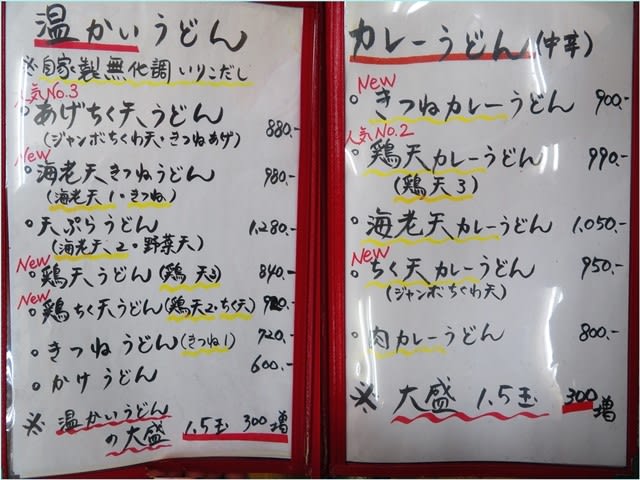 温かいうどん
※自家製無化調いりこだし
人気No.3
。あげちく天うどん 880.-
(ジャンボちくわ天・きつねあげ)
New
。海老天きつねうどん 980.-
(海老天1・きつね1)
。天ぷらうどん 1,280.-
(海老天2・野菜天)
New
。鶏天うどん(鶏天3) 840.-
New
。鶏ちく天うどん(鶏天2・ちく天)
。きつねうどん(きつね1) 720.-
。かけうどん 600.-
※温かいうどん
の大盛 1.5玉 300増
カレーうどん(中辛)
New
。きつねカレーうどん 900.-
人気No.2
。鶏天カレーうどん 990.-
(鶏天3)
。海老天カレーうどん 1,050.-
New
。ちく天カレーうどん 950.-
(ジャンボちくわ天)
。肉カレーうどん 800.-
※大盛 1.5玉 300増